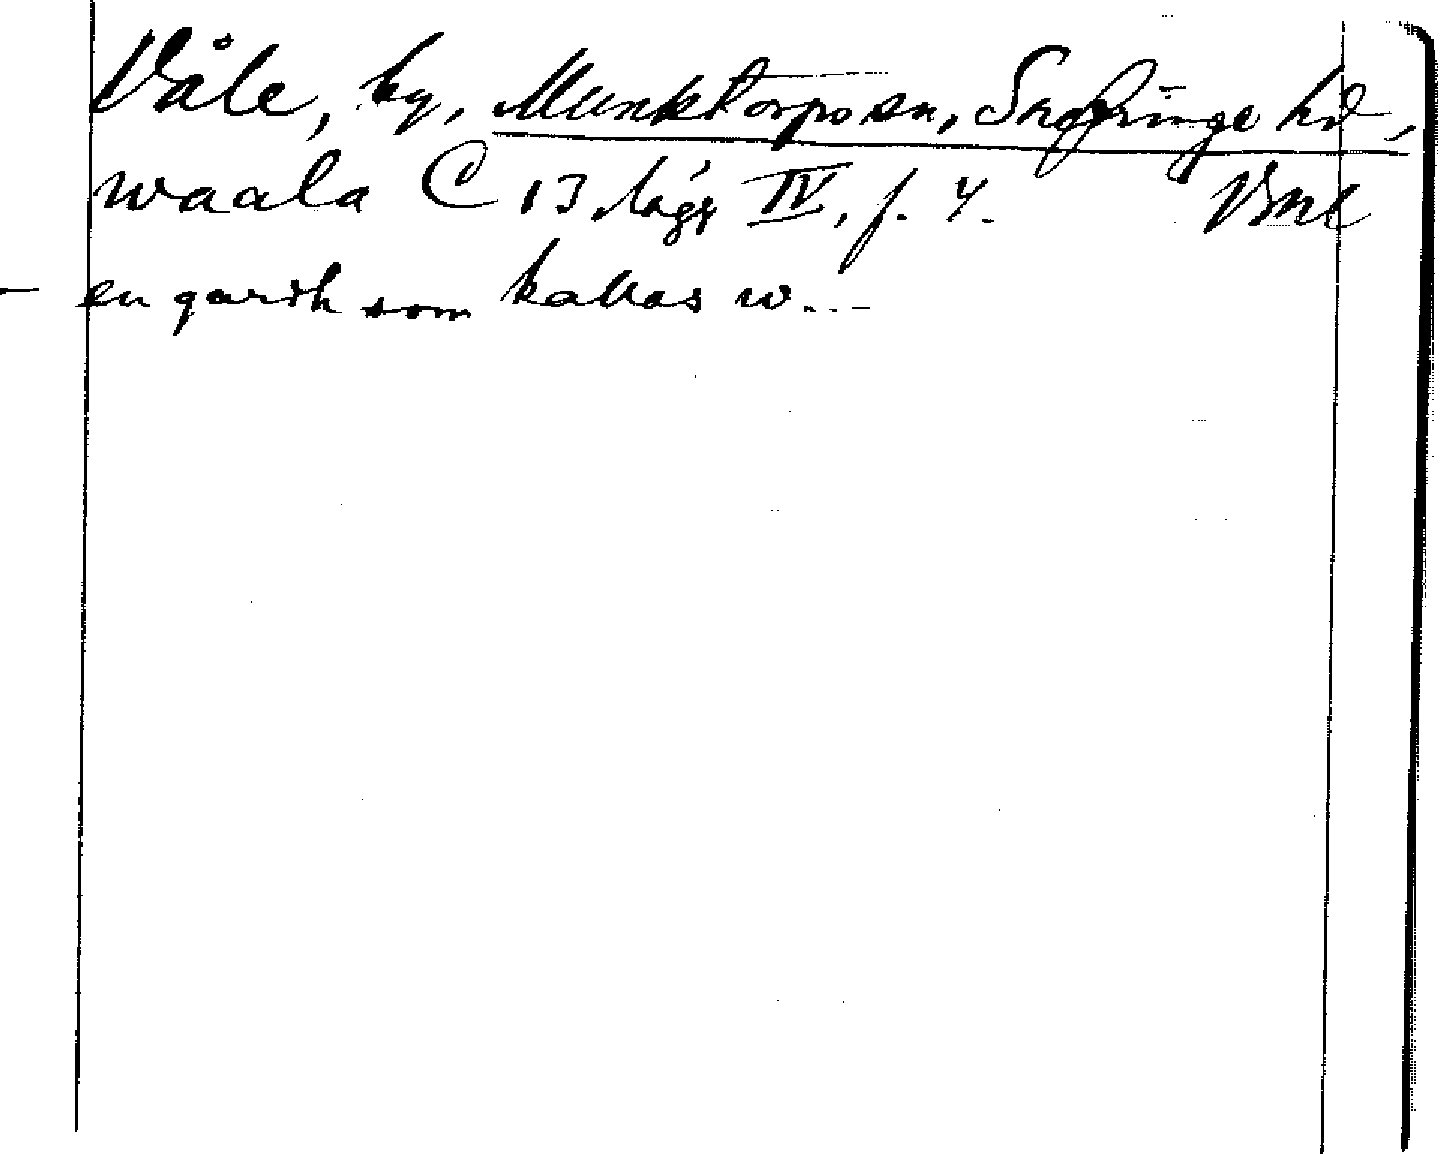 Våle, by, Munktorps sn, Snefringe hd,
waala C 13, lägg IV, f. 4. Vml
en gardh som kallas w...